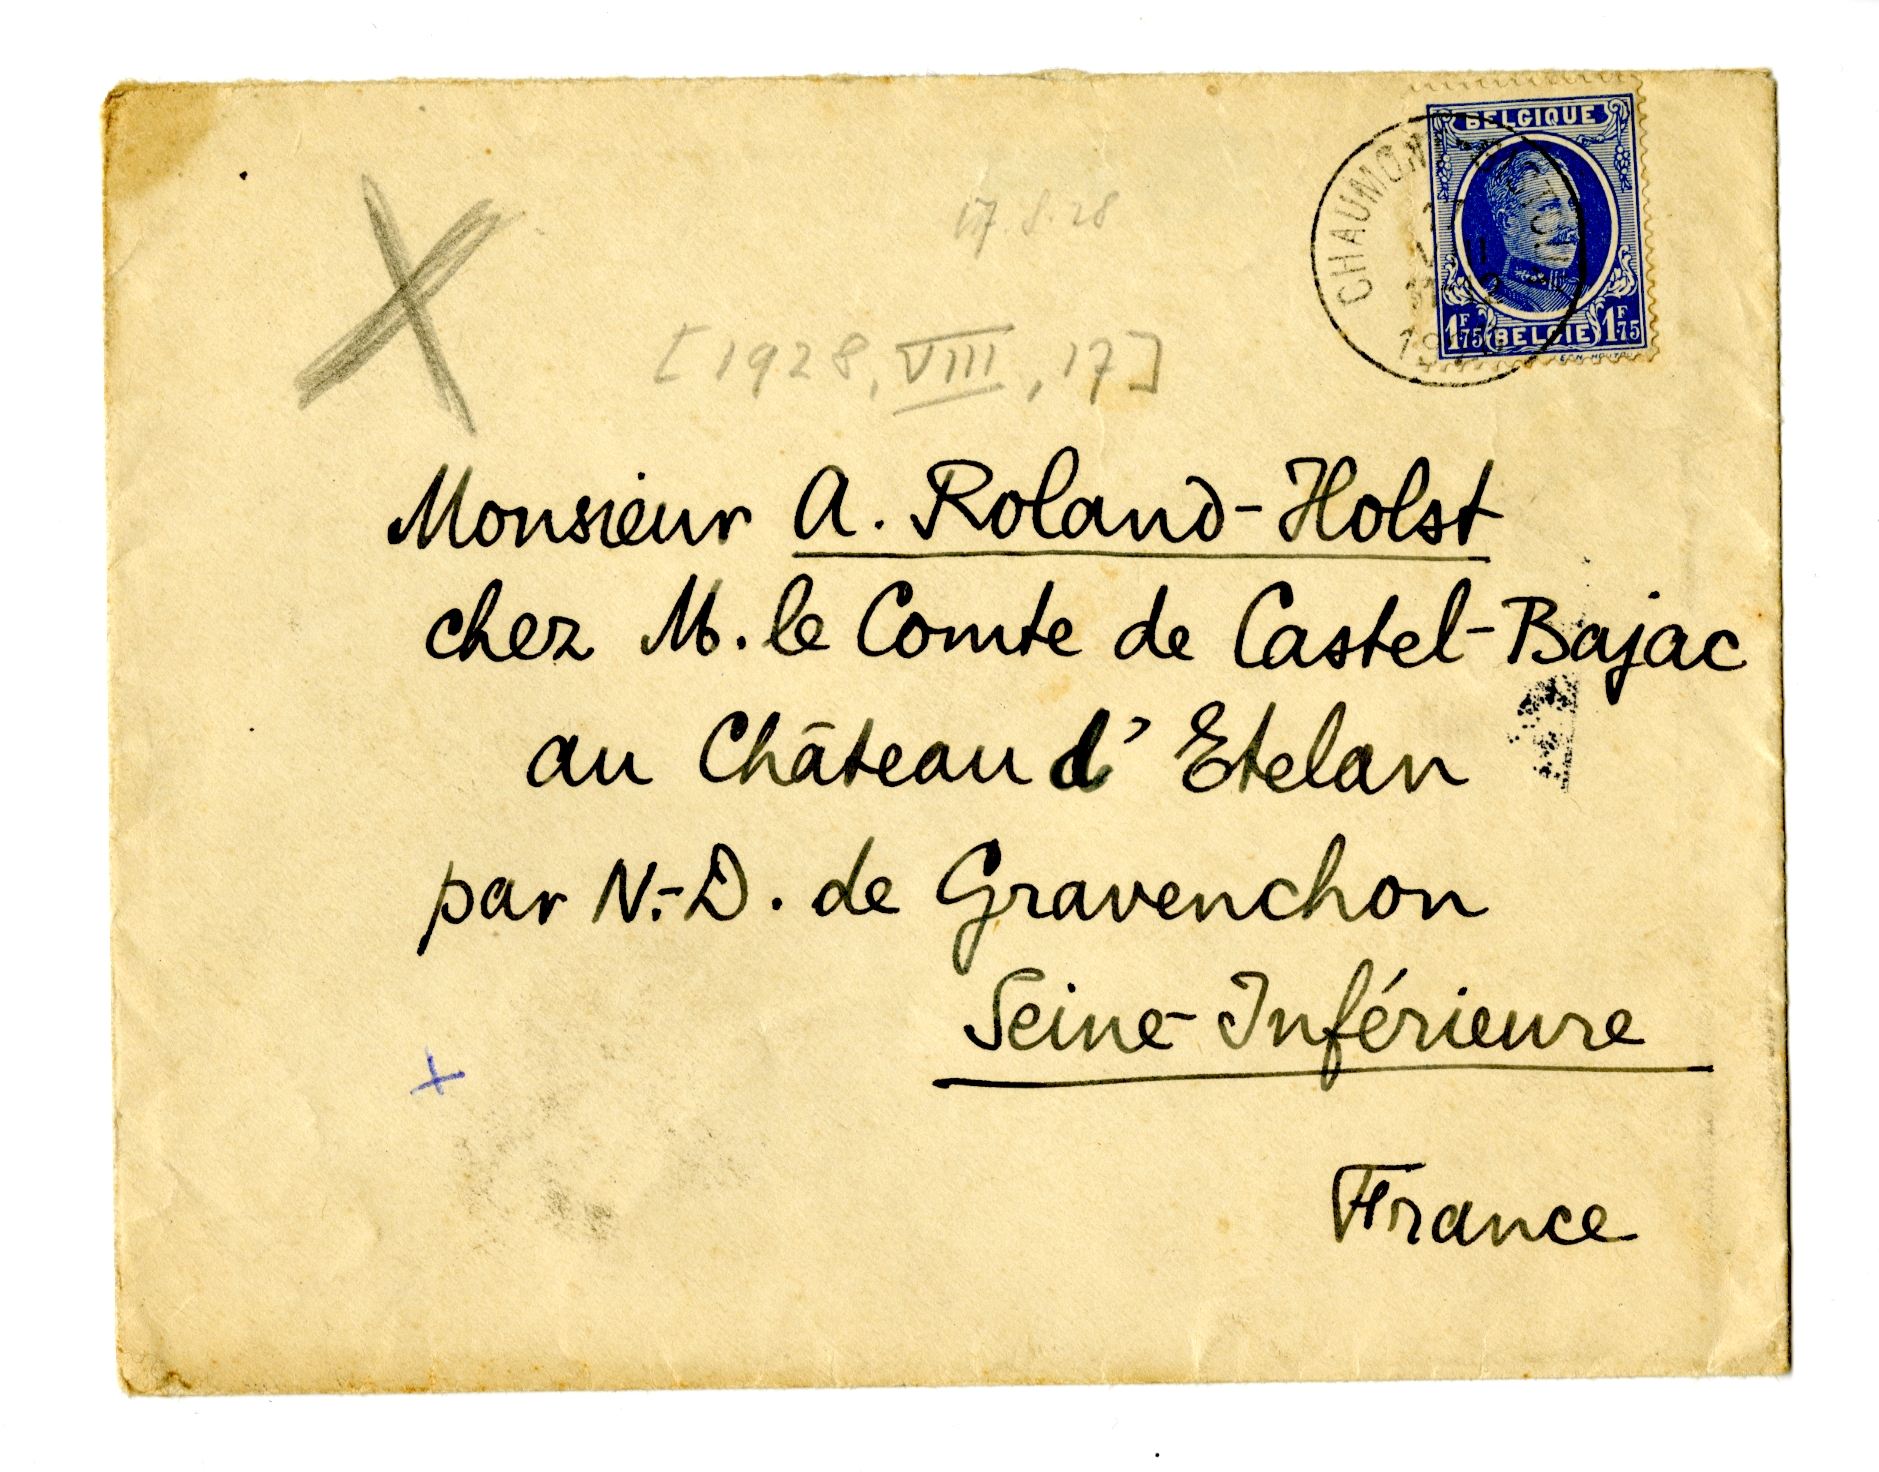 17.8.28
BELGIQUE
CHAUMONT
1F75 BELGIË 1F75
[1928, VIII, 17]
Monsieur A. Roland-Holst
chez M. le Comte de Castel-Bajac
au Château d'Etelan
par N.-D. de Gravenchon
Seine-Inférieure
France